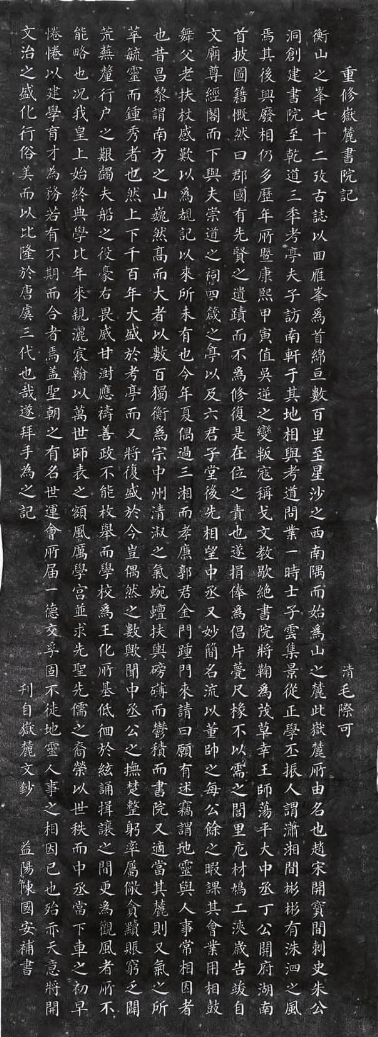 重修嶽麓書院記
清毛際可
衡山之峯七十二攷古誌以囬雁峯為首綿亘數百里至星沙之西南隅而始為山之麓此嶽麓所由名也趙宋開寶間刺史朱公
洞創建書院至乾道三季考亭夫子訪南軒于其地相與考道問業一時士子雲集景從正學丕振人謂瀟湘間彬彬有洙泗之風
焉其後興廢相仍多歷年所暨康熙甲寅值吳逆之變叛寇稱戈文教歇絶書院將鞠為茂草幸王師蕩平大中丞丁公開府湖南
首披圖籍慨然曰郡國有先賢之遺蹟而不為修復是在位之責也遂捐俸為倡片甍尺椽不以需之閭里庀材鳩工浹歲告竣自
文廟尊經閣而下與夫崇道之祠四箴之亭以及六君子堂後先相望中丞又妙簡名流以董帥之每公餘之暇課其會業用相鼓
舞父老扶杖感歎以為覩記以來所未有也今年夏偶過三湘而孝廉郭君金門踵門来請曰願有述竊謂地靈與人事常相因者
也昔昌黎謂南方之山巍然髙而大者以數百獨衡為宗中州清淑之氣蜿蟺扶輿磅礴而鬱積而書院又適當其麓則又氣之所
萃毓靈而鍾秀者也然上下千百年大盛於考亭而又將復盛於今豈偶然之數歟聞中丞公之撫楚整躬率屬儆貪黷賑窮乏闢
荒蕪釐行户之艱蠲夫船之役豪右畏威甘澍應禱善政不能枚舉而學校為王化所基低徊於絃誦揖讓之間更為觀風者所不
能略也況我皇上始終典學比年來親灑宸翰以萬世師表之額風厲學宮並求先聖先儒之裔榮以世秩而中丞當下車之初早
惓惓以建學育才為務若有不期而合者焉盖聖朝之有名世運會所届一德交孚固不徒地靈人事之相因已也殆亦天意將開
文治之盛化行俗美而以比隆於唐虞三代也哉遂拜手為之記
刊自嶽麓文鈔
益陽陳國安補書